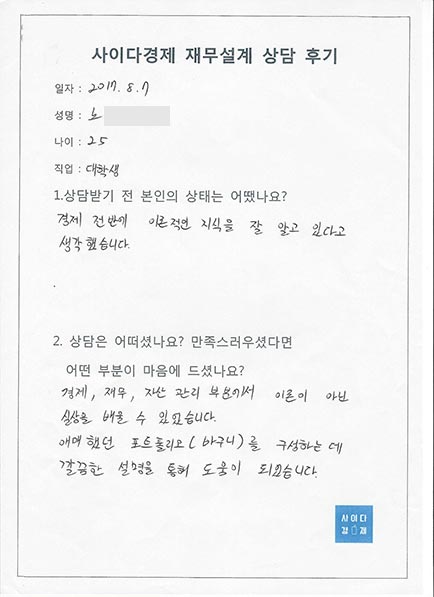 사이다경제 재무설계 상담 후기
일자 : 2017. 8. 7
성명 : 노
나이 : 25
직업 : 대학생
1.상담받기 전 본인의 상태는 어땠나요?
경제 전반에 이론적인 지식을 잘 알고 있다고
생각했습니다.
2. 상담은 어떠셨나요? 만족스러우셨다면
어떤 부분이 마음에 드셨나요?
경제, 재무, 자산 관리 부분에서 이론이 아닌
실상을 배울 수 있었습니다.
애매했던 포트폴리오(바구니)를 구성하는 데
깔끔한 설명을 통해 도움이 되었습니다.
사이다
경제